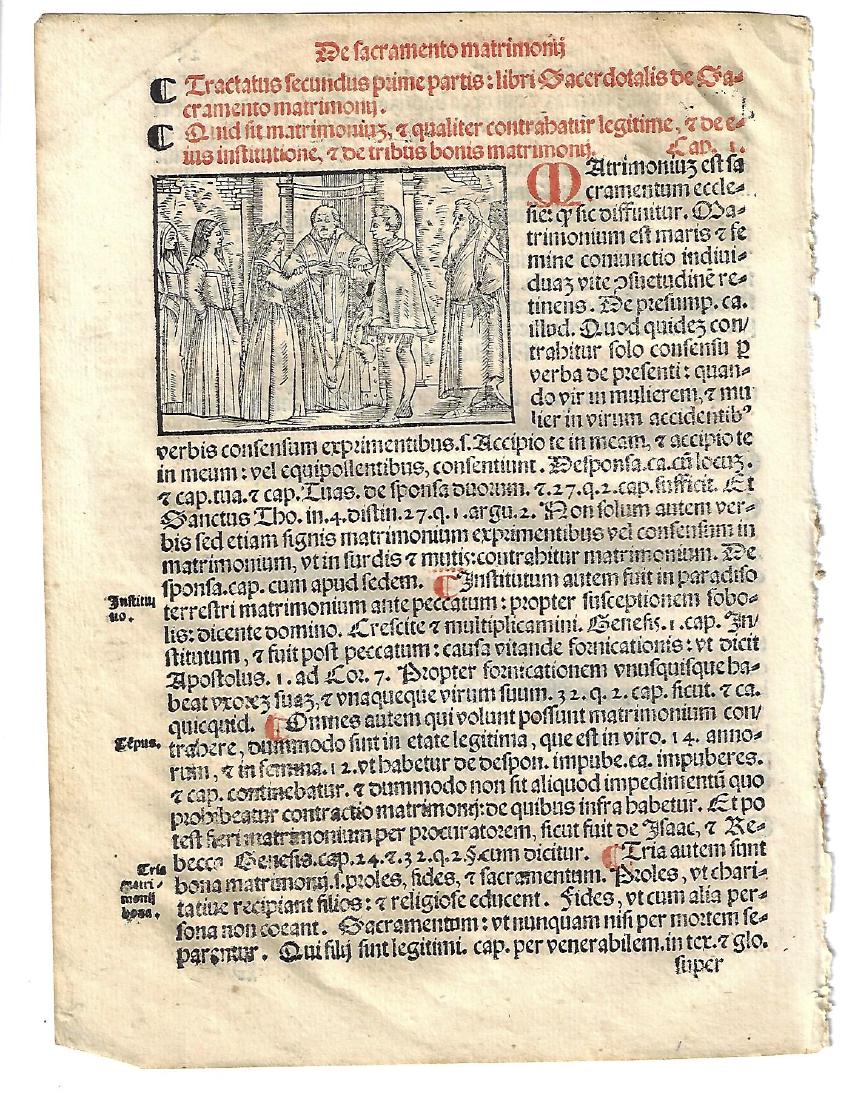 De sacramento matrimonij
¶ Tractatus secundus prime partis: libri Sacerdotalis de Sa-
cramento matrimonij.
¶ Quid sit matrimoniuꝫ, ⁊ qualiter contrahatur legitime, ⁊ de e-
ius institutione, ⁊ de tribus bonis matrimonij. Cap. 1.
MAtrimoniuꝫ est sa
cramentum eccle-
sie: ꝙ sic diffinitur. Ma-
trimonium est maris ⁊ fe
mine coniunctio indiui-
duaꝫ vite ꝯsuetudinē re-
tinens. De presump. ca.
illud. Quod quideꝫ con/
trahitur solo consensu ꝑ
verba de presenti: quan-
do vir in mulierem, ⁊ mu
lier in virum accidentibꝰ
verbis consensum exprimentibus.s. Accipio te in meam, ⁊ accipio te
in meum: vel equipollentibus, consentiunt. Desponsa.ca.cū locuꝫ.
⁊ cap.tua.⁊ cap. Tuas. de sponsa duorum. ⁊.27.q.2.cap.sufficit. Et
Sanctus Tho. in.4.distin.27.q.1.argu.2. Non solum autem ver-
bis sed etiam signis matrimonium exprimentibus vel consensum in
matrimonium, vt in surdis ⁊ mutis:contrahitur matrimonium. De
sponsa.cap. cum apud sedem. ¶ Institutum autem fuit in paradiso
Institu
tio.
terrestri matrimonium ante peccatum: propter susceptionem sobo-
lis: dicente domino. Crescite ⁊ multiplicamini. Genesis.1.cap. In/
stitutum, ⁊ fuit post peccatum: causa vitande fornicationis: vt dicit
Apostolus. 1. ad Cor. 7. Propter fornicationem vnusquisque ha-
beat vxoreꝫ suaꝫ, ⁊ vnaqueque virum suum. 32. q. 2. cap. sicut. ⁊ ca.
quicquid. ¶ Omnes autem qui volunt possunt matrimonium con/
Tēpus.
trahere, dummodo sint in etate legitima, que est in viro. 14. anno-
rum, ⁊ in femina.12.vt habetur de despon. impube.ca. impuberes.
⁊ cap. continebatur. ⁊ dummodo non sit aliquod impedimentū quo
prohibeatur contractio matrimonij:de quibus infra habetur. Et po
test fieri matrimonium per procuratorem, sicut fuit de Isaac, ⁊ Re-
becca Genesis.cap.24.⁊.32.q.2.§.cum dicitur. ¶ Tria autem sunt
Tria
matri-
monij
bona.
bona matrimonij.s.proles, fides, ⁊ sacramentum. Proles, vt chari-
tatiue recipiant filios: ⁊ religiose educent. Fides, vt cum alia per-
sona non coeant. Sacramentum: vt nunquam nisi per mortem se-
parentur. Qui filij sint legitimi. cap. per venerabilem.in tex.⁊ glo.
super